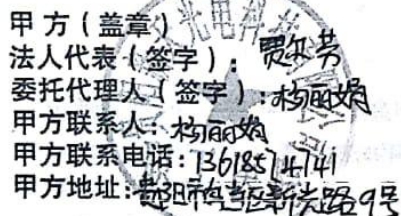 甲方（盖章）
法人代表（签字）：贾知芳
委托代理人（签字）：杨丽娟
甲方联系人：杨丽娟
甲方联系电话：13618574741
甲方地址：贵阳市乌当区新光路9号
光电科